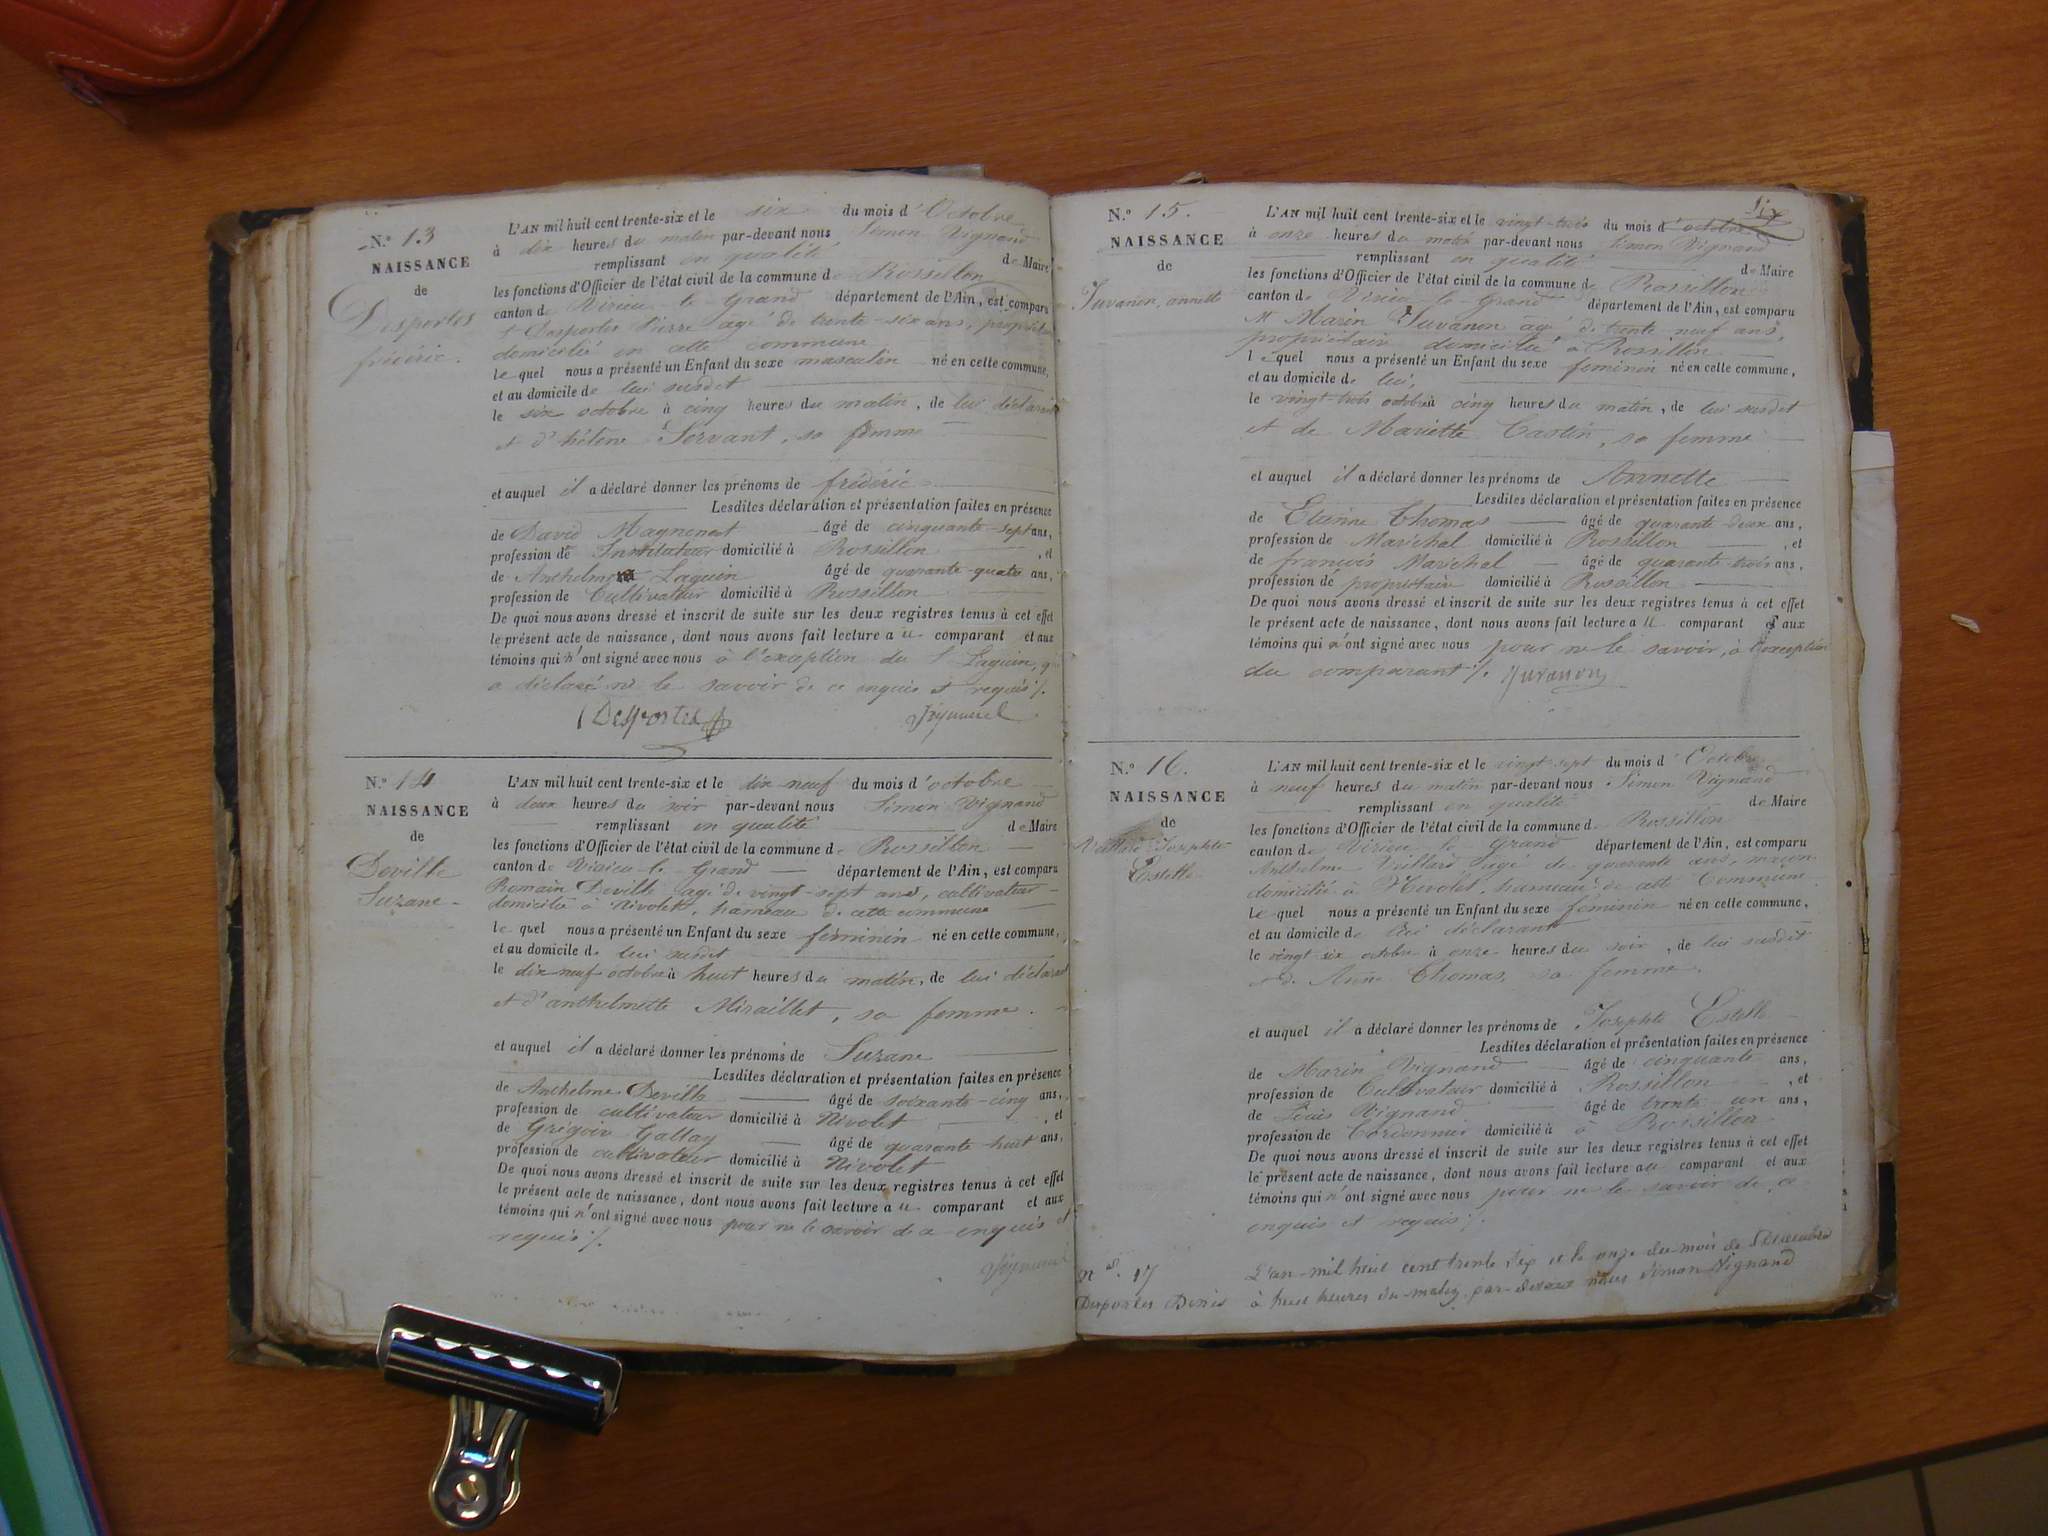 N.º 13
NAISSANCE
de
Desportes
frédéric.
L'AN mil huit cent trente-six et le six du mois d'Octobre
à dix heures du matin par-devant nous Simon Vignand
remplissant en qualité de Maire
les fonctions d'Officier de l'état civil de la commune de Rossillon
canton de Virieu le Grand département de l'Ain, est comparu
Desportes Pierre agé de trente-six ans, propriétaire
domicilié en cette commune
le quel nous a présenté un Enfant du sexe masculin né en cette commune,
et au domicile de lui susdit
le six octobre à cinq heures du matin, de lui déclarant
et d'hélène Servant, sa femme
et auquel il a déclaré donner les prénoms de frédéric
Lesdites déclaration et présentation faites en présence
de David Magnenat âgé de cinquante-sept ans,
profession de Instituteur domicilié à Rossillon, et
de Anthelme Laguin âgé de quarante-quatre ans,
profession de Cultivateur domicilié à Rossillon
De quoi nous avons dressé et inscrit de suite sur les deux registres tenus à cet effet
le présent acte de naissance, dont nous avons fait lecture au comparant et aux
témoins qui n'ont signé avec nous à l'exception du S Laguin, qui
a déclaré ne le savoir de ce enquis et requis ./.
Desportes
N.º 14
NAISSANCE
de
Deville
Suzane
L'AN mil huit cent trente-six et le dix neuf du mois d'octobre
à deux heures du soir par-devant nous Simon Vignand
remplissant en qualité de Maire
les fonctions d'Officier de l'état civil de la commune de Rossillon
canton de Virieu le Grand département de l'Ain, est comparu
Romain Deville agé de vingt-sept ans, cultivateur
domicilié à Nivolet, hameau de cette commune
le quel nous a présenté un Enfant du sexe féminin né en cette commune,
et au domicile de lui susdit
le dix neuf octobre à huit heures du matin, de lui déclarant
et d'anthelmette Miraillet, sa femme.
et auquel il a déclaré donner les prénoms de Suzane
Lesdites déclaration et présentation faites en présence
de Anthelme Deville âgé de soixante-cinq ans,
profession de cultivateur domicilié à Nivolet, et
de Grégoire Gallay âgé de quarante huit ans,
profession de cultivateur domicilié à Nivolet
De quoi nous avons dressé et inscrit de suite sur les deux registres tenus à cet effet
le présent acte de naissance, dont nous avons fait lecture au comparant et aux
témoins qui n'ont signé avec nous pour ne le savoir de ce enquis et
requis ./.
Six
N.º 15.
NAISSANCE
de
Juvanon, annette
L'AN mil huit cent trente-six et le vingt-trois du mois d'octobre
à onze heures du matin par-devant nous Simon Vignand
remplissant en qualité de Maire
les fonctions d'Officier de l'état civil de la commune de Rossillon
canton de Virieu le Grand département de l'Ain, est comparu
M Marin Juvanon agé de trente neuf ans,
propriétaire domicilié à Rossillon
le quel nous a présenté un Enfant du sexe feminin né en cette commune,
et au domicile de lui,
le vingt-trois octobre à cinq heures du matin, de lui susdit
et de Mariette Castin, sa femme
et auquel il a déclaré donner les prénoms de Annette
Lesdites déclaration et présentation faites en présence
de Etienne Thomas âgé de quarante-deux ans,
profession de Maréchal domicilié à Rossillon, et
de francois Maréchal âgé de quarante-trois ans,
profession de propriétaire domicilié à Rossillon
De quoi nous avons dressé et inscrit de suite sur les deux registres tenus à cet effet
le présent acte de naissance, dont nous avons fait lecture au comparant et aux
témoins qui n'ont signé avec nous pour ne le savoir, à l'exception
du comparant ./. Juvanon
N.º 16.
NAISSANCE
de
Vuillard Josephte
Estelle
L'AN mil huit cent trente-six et le vingt-sept du mois d'Octobre
à neuf heures du matin par-devant nous Simon Vignand
remplissant en qualité de Maire
les fonctions d'Officier de l'état civil de la commune de Rossillon
canton de Virieu le Grand département de l'Ain, est comparu
Anthelme Vuillard agé de quarante ans, maçon
domicilié à Nivolet, hameau de cette Commune
le quel nous a présenté un Enfant du sexe féminin né en cette commune,
et au domicile de lui déclarant
le vingt-six octobre à onze heures du soir, de lui susdit
et de Anne Thomas, sa femme.
et auquel il a déclaré donner les prénoms de Josephte Estelle
Lesdites déclaration et présentation faites en présence
de Marin Vignand âgé de cinquante ans,
profession de Cultivateur domicilié à Rossillon, et
de Louis Vignand âgé de trente un ans,
profession de Cordonnier domicilié à à Rossillon
De quoi nous avons dressé et inscrit de suite sur les deux registres tenus à cet effet
le présent acte de naissance, dont nous avons fait lecture au comparant et aux
témoins qui n'ont signé avec nous pour ne le savoir de ce
enquis et requis ./.
Nº. 17
Desportes Denis
L'an mil huit cent trente six et le onze du mois de Décembre
à huit heures du matin par-devant nous Simon Vignand